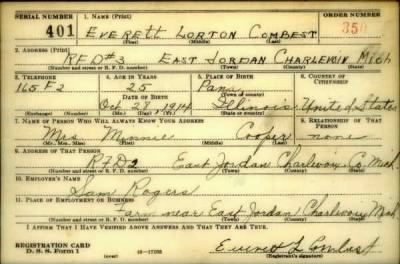 SERIAL NUMBER 1. NAME (Print) ORDER NUMBER
401 EVERETT LORTON COMBEST 350
(First) (Middle) (Last)
2. ADDRESS (Print)
RFD#3 EAST JORDAN CHARLEVOIX Mich
(Number and street or R. F. D. number) (Town) (County) (State)
3. TELEPHONE 4. AGE IN YEARS 5. PLACE OF BIRTH 6. COUNTRY OF CITIZENSHIP
165 F2 25 Pana
DATE OF BIRTH (Town or county)
Oct 28, 1914 Illinois United States
(Exchange) (Number) (Mo.) (Day) (Yr.) (State or country)
7. NAME OF PERSON WHO WILL ALWAYS KNOW YOUR ADDRESS 8. RELATIONSHIP OF THAT PERSON
Mrs. Minnie Cooper none
(Mr., Mrs., Miss) (First) (Middle) (Last)
9. ADDRESS OF THAT PERSON
RFD2 East Jordan Charlevoix Co. Mich.
(Number and street or R. F. D. number) (Town) (County) (State)
10. EMPLOYER'S NAME
Sam Rogers
11. PLACE OF EMPLOYMENT OR BUSINESS
Farm near East Jordan Charlevoix Mich.
(Number and street or R. F. D. number) (Town) (County) (State)
I AFFIRM THAT I HAVE VERIFIED ABOVE ANSWERS AND THAT THEY ARE TRUE.
REGISTRATION CARD
D. S. S. Form 1 (over) Everett L Combest
(Registrant's signature)